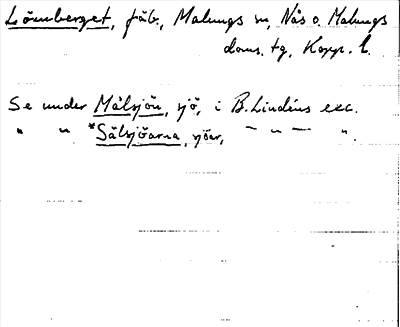 Lömberget, fäb., Malungs sn, Nås o. Malungs
doms. tg, Kopp. l.
Se under Målsjön, sjö, i B. Lindéns exc.
" " *Sälsjöarna, sjöar, — " — ".